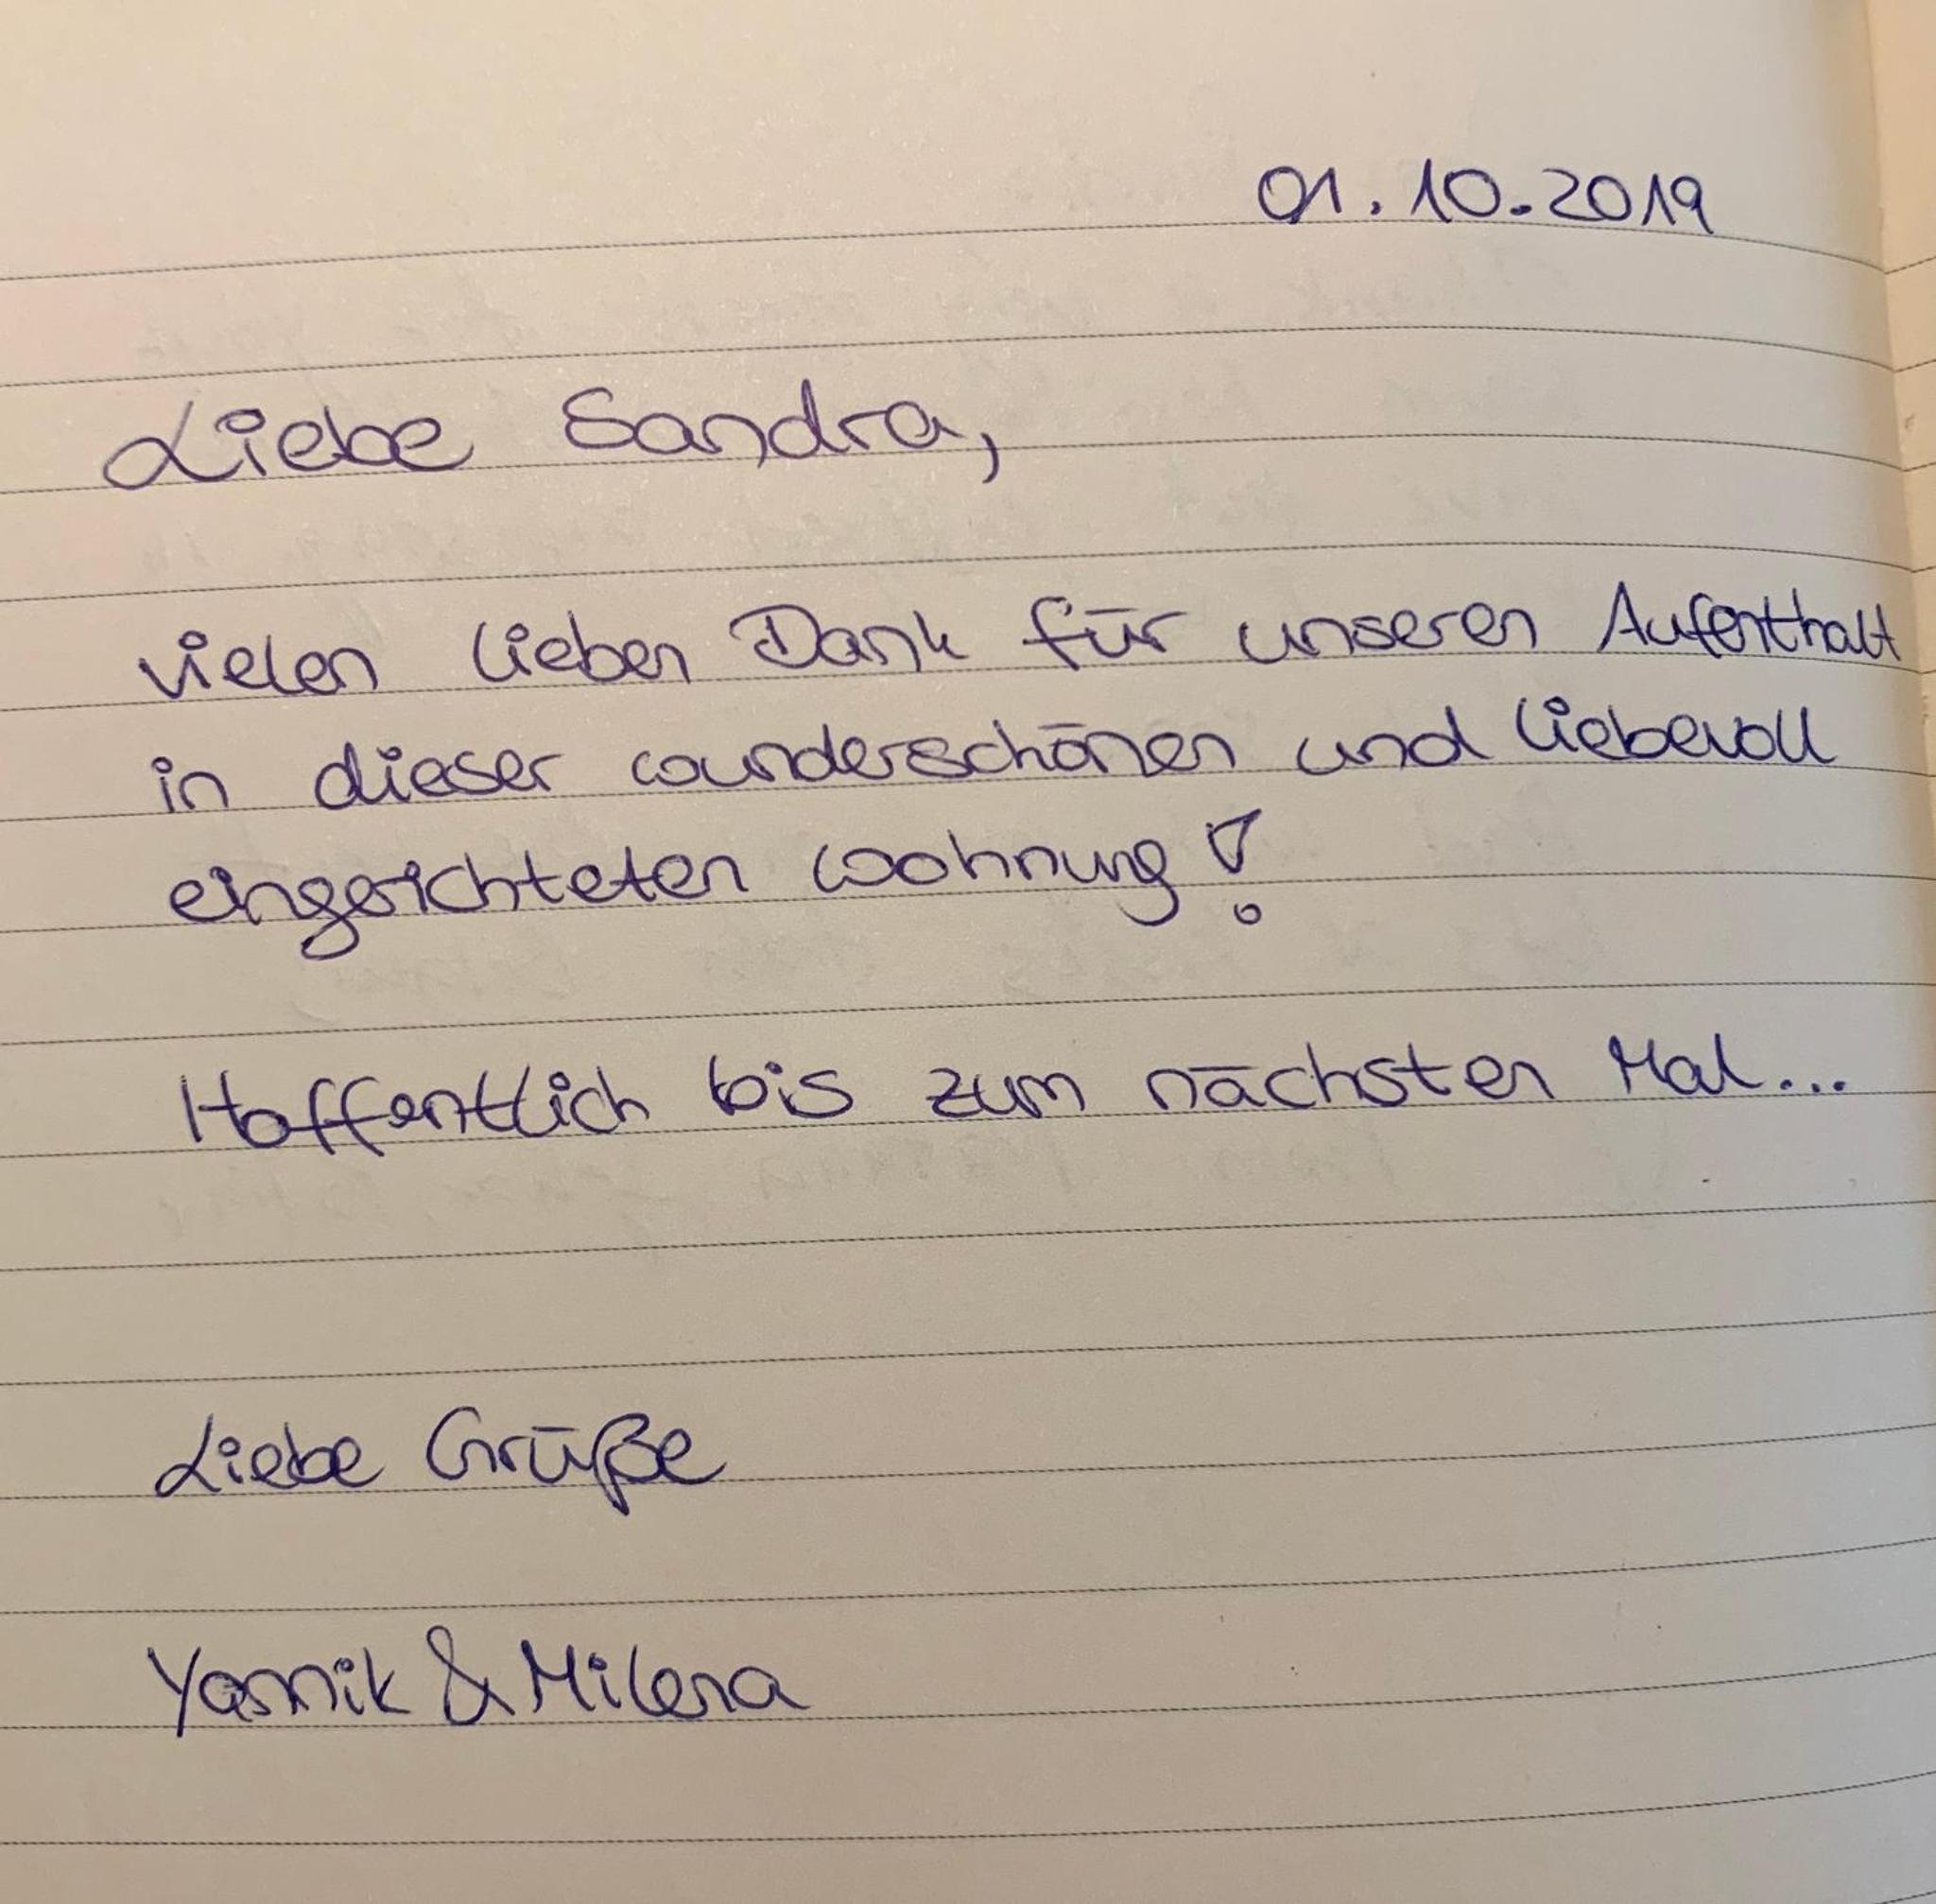 01.10.2019
Liebe Sandra,
vielen lieben Dank für unseren Aufenthalt
in dieser wunderschönen und liebevoll
eingerichteten Wohnung!
Hoffentlich bis zum nächsten Mal...
Liebe Grüße
Yannik & Milena